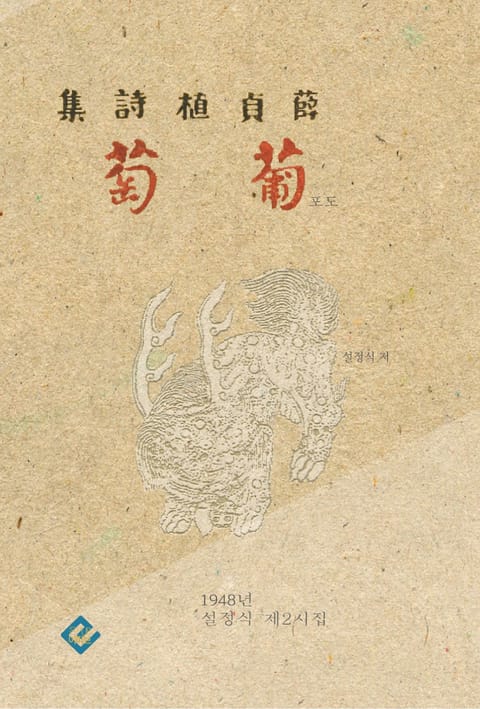 薛貞植詩集
葡萄
포도
설정식 저
1948년
설정식 제2시집